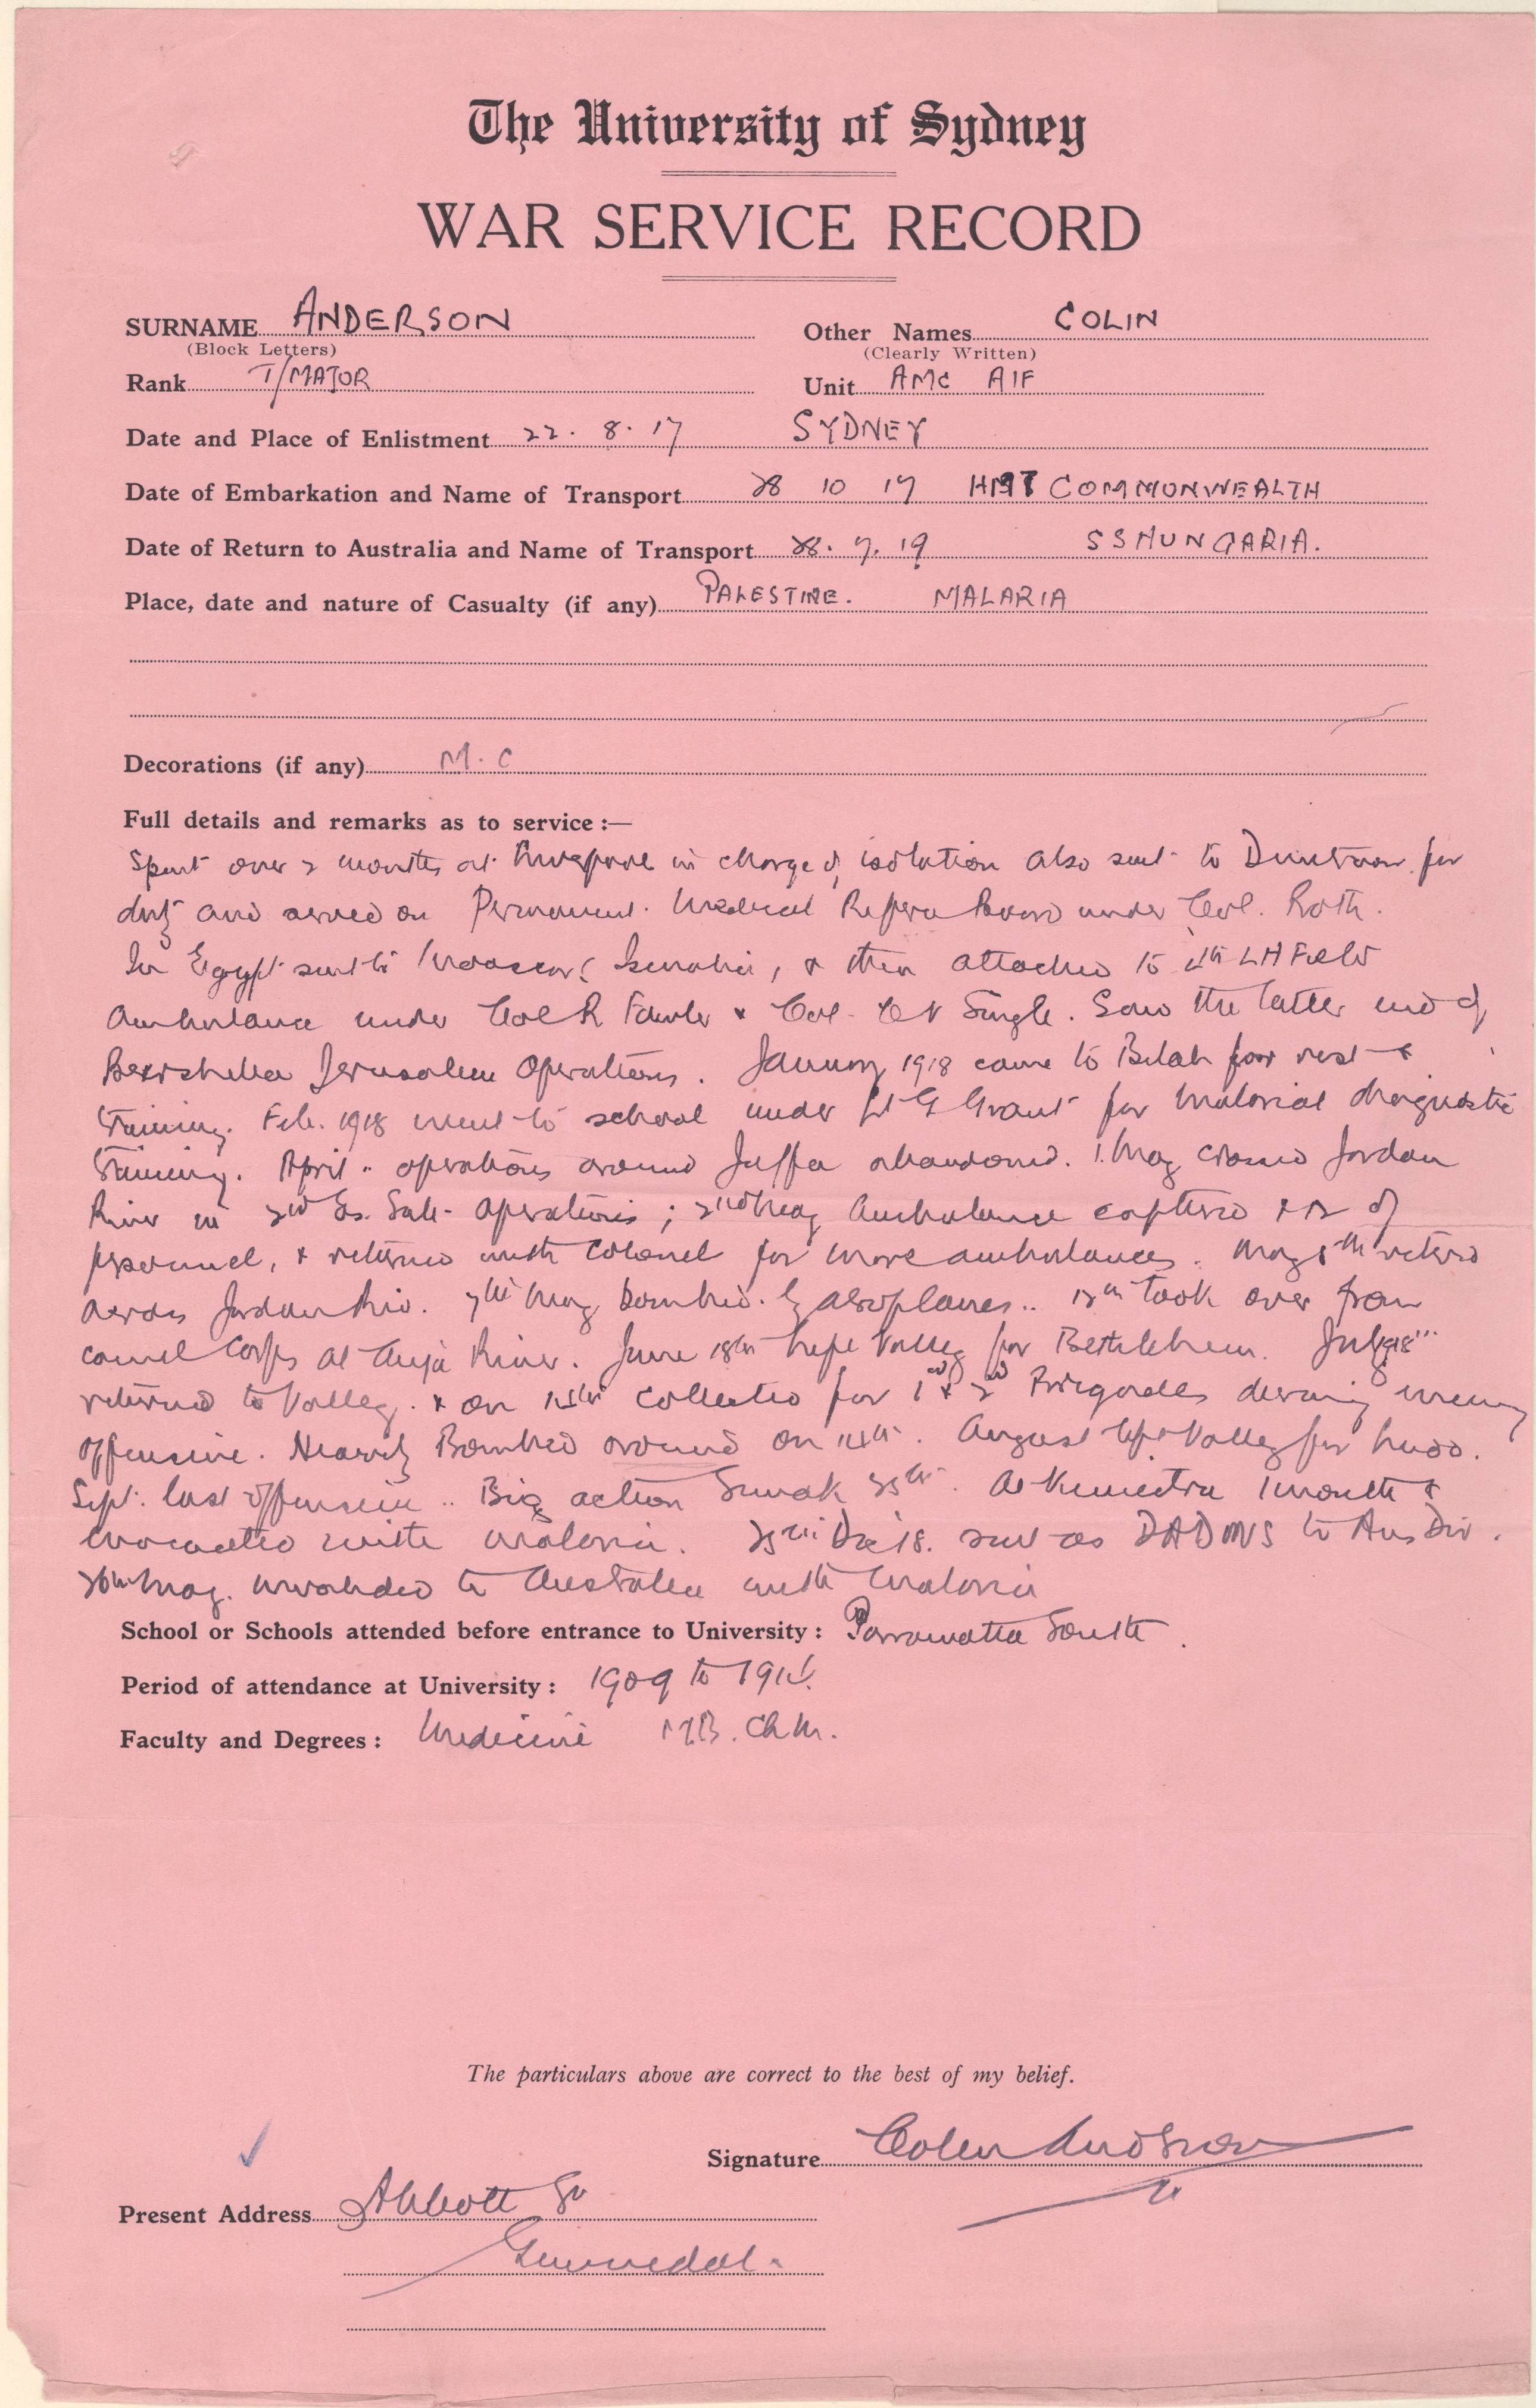 The University of Sydney
WAR SERVICE RECORD
SURNAME ANDERSON Other Names COLIN
(Block Letters) (Clearly Written)
Rank T/MAJOR Unit AMC AIF
Date and Place of Enlistment 22. 8. 17 SYDNEY
Date of Embarkation and Name of Transport 28 10 17 HMT COMMONWEALTH
Date of Return to Australia and Name of Transport 28. 7. 19 SS HUNGARIA.
Place, date and nature of Casualty (if any) PALESTINE. MALARIA
Decorations (if any) M.C
Full details and remarks as to service :—
Spent over 2 months at Liverpool in charge of isolation also sent to Duntroon for
duty and served on Permanent Medical Referee Board under Col. Roth.
In Egypt sent to Moascar, & then attached to 4th LH Field
Ambulance under Col R Fowler & Col. Single. Saw the latter end of
Beersheba Jerusalem Operations. January 1918 came to Belah for rest &
training. Feb. 1918 went to school under G Grant for malarial diagnostic
training. April .. operations around Jaffa abandoned. 1. May crossed Jordan
River in 2nd Es. Salt operations; 2nd May Ambulance captured & of
personnel, & returned with Colonel for more ambulances. May retired
across Jordan Riv. 7th May bombed by aeroplanes.. took over from
camel Corps at Auja River. June 18th left Valley for Bethlehem. July
returned to Valley. & on collected for 1st & 2nd Brigades during enemy
offensive. Heavily Bombed around on 14th. August left Valley for
Sept. last offensive .. Big action 25th. At Kuneitra 1 month &
evacuated with malaria. 25th Dec 18. sent as DADMS to Aus Div.
May. invalided to Australia with malaria
School or Schools attended before entrance to University : Parramatta South.
Period of attendance at University : 1909 to 1914.
Faculty and Degrees : Medicine M.B. Ch.M.
The particulars above are correct to the best of my belief.
Signature Colin Anderson
Present Address Abbott St
Gunnedah.